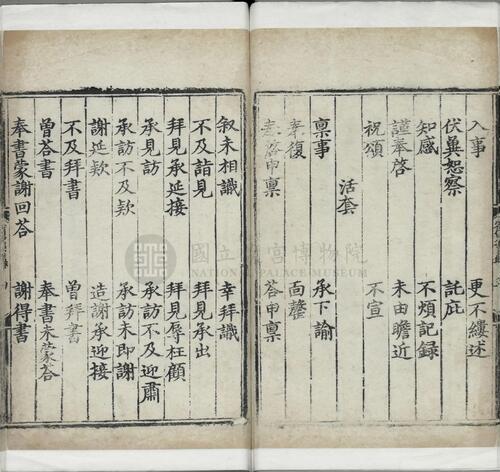 入事 更不縷述
伏冀恕察 託庇
知感 不煩記録
謹奉啓 未由瞻近
祝頌 不宣
活套
稟事 承下諭
奉復 面罄
荅申稟
叙未相識 幸拜識
不及詣見 拜見承出
拜見承延接 拜見辱枉顧
承見訪 承訪不及迎肅
承訪不及欵 承訪未即謝
謝延欵 造謝承迎接
不及拜書 曾拜書
曾荅書 奉書未蒙荅
奉書蒙謝回荅 謝得書
國立 宮博物院
NATIONAL PALACE MUSEUM